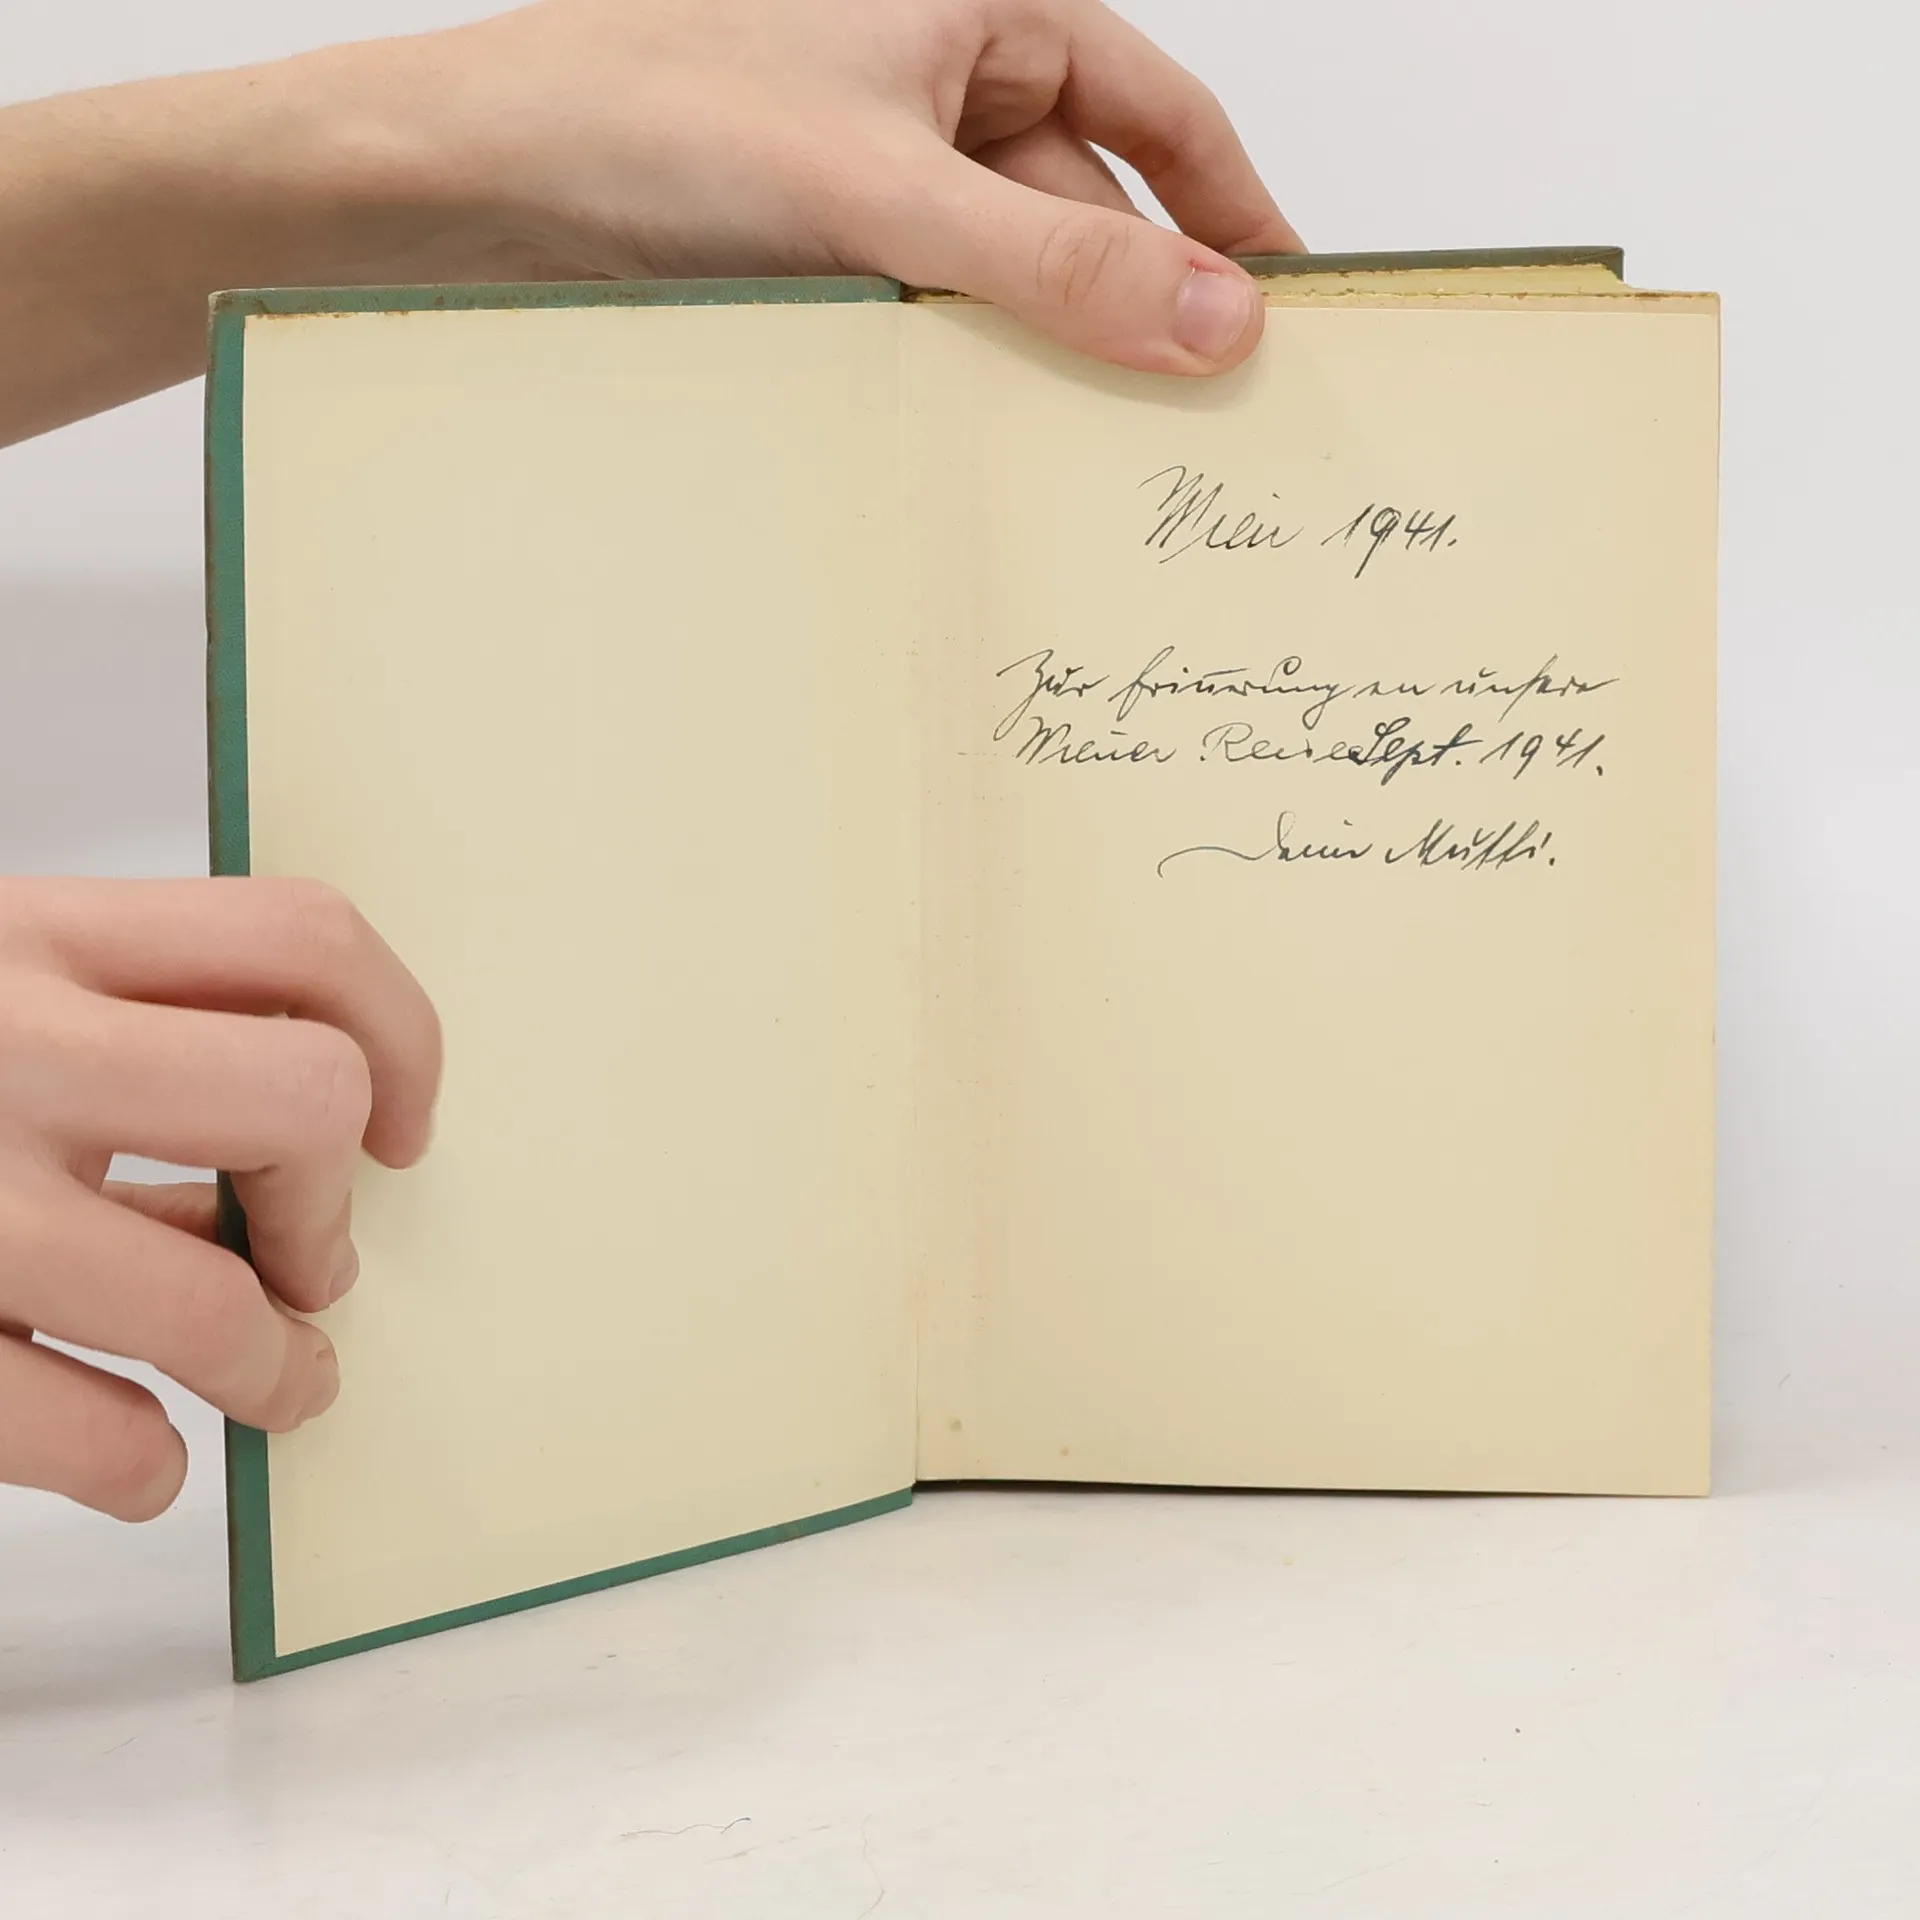 Wien 1941.
Zur Erinnerung an unsere
Wiener Reise Sept. 1941.
Deine Mutti.